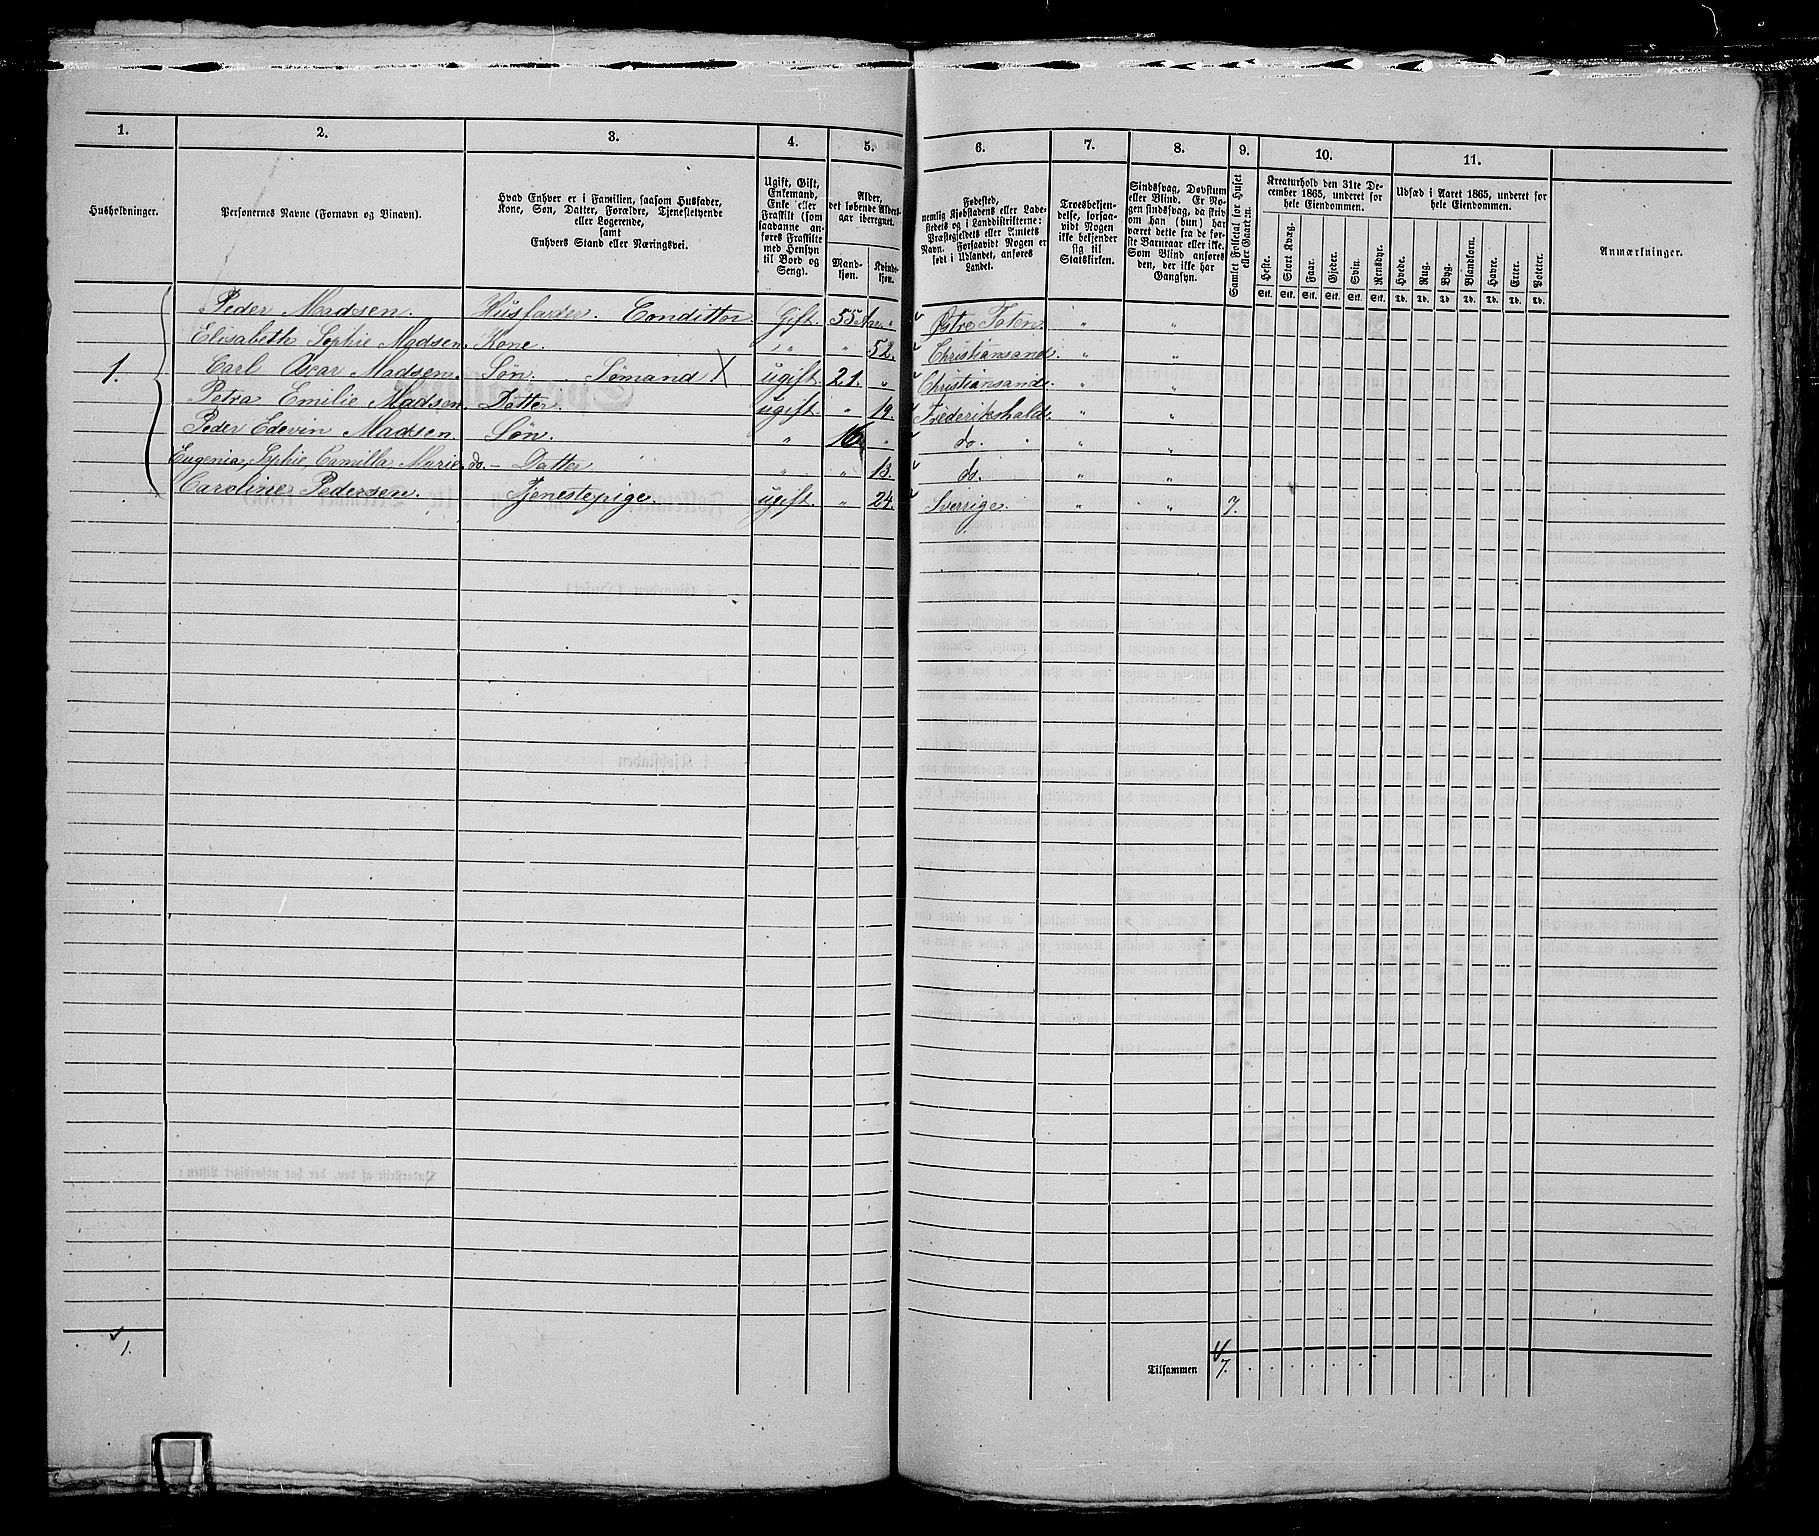 1. 2. 3. 4. 5. 6. 7. 8. 9. 10. 11.
Husholdninger.
Personernes Navne (Fornavn og Tilnavn).
Hvad Enhver er i Familien, saasom Husfader,
Kone, Søn, Datter, Forældre, Tjenestetyende
eller Logerende,
samt
Enhvers Stand eller Næringsvei.
Ugift, Gift,
Enkemand,
Enke eller
Fraskilt (som
saadanne an-
føres Fraskilte
med Hensyn
til Bord og
Seng).
Alder,
det løbende Alders-
aar iberegnet.
Mand-
kjøn.
Kvinde-
kjøn.
Fødested,
nemlig Kjøbstadens eller Lade-
stedets og i Landdistrikterne:
Præstegjeldets eller Amtets
Navn. Forsaavidt Nogen er
født i Udlandet, anføres
Landet.
Troesbekjen-
delse, forsaa-
vidt Nogen
ikke bekjender
sig til
Statskirken.
Sindssvag, Døvstum
eller Blind. Er No-
gen sindssvag, da skriv
om han (hun) har
været dette fra de før-
ste Barneaar eller ikke.
Som Blind anføres
den, der ikke har
Gangsyn.
Samlet Folketal for Huset
eller Gaarden.
Kreaturhold den 31te De-
cember 1865, underet for
hele Eiendommen.
Heste. Stort Kvæg. Faar. Gjeder. Svin. Rensdyr.
Stk. Stk. Stk. Stk. Stk. Stk.
Udsæd i Aaret 1865, underet for
hele Eiendommen.
Hvede. Rug. Byg. Blandkorn. Havre. Erter. Poteter.
Td. Td. Td. Td. Td. Td. Td.
Anmærkninger.
Peder Madsen. Husfader. Conditter Gift. 55 Aar " Østre Toten " "
Elisabeth Sophie Madsen. Kone. " " " 52. Christiansand. " "
1. Carl Oscar Madsen. Søn. Sømand X ugift. 21. " Christiansand. " "
Petra Emilie Madsen. Datter. ugift " 19. Frederikshald. " "
Peder Edevin Madsen. Søn. " 16 " do. " "
Eugenia, Sophie, Camilla Marie do. – Datter " " 13. do. " "
Caroline Pedersen. Tjenestepige. ugift. " 24. Sverrige. " " 7.
1.
Tilsammen 7.